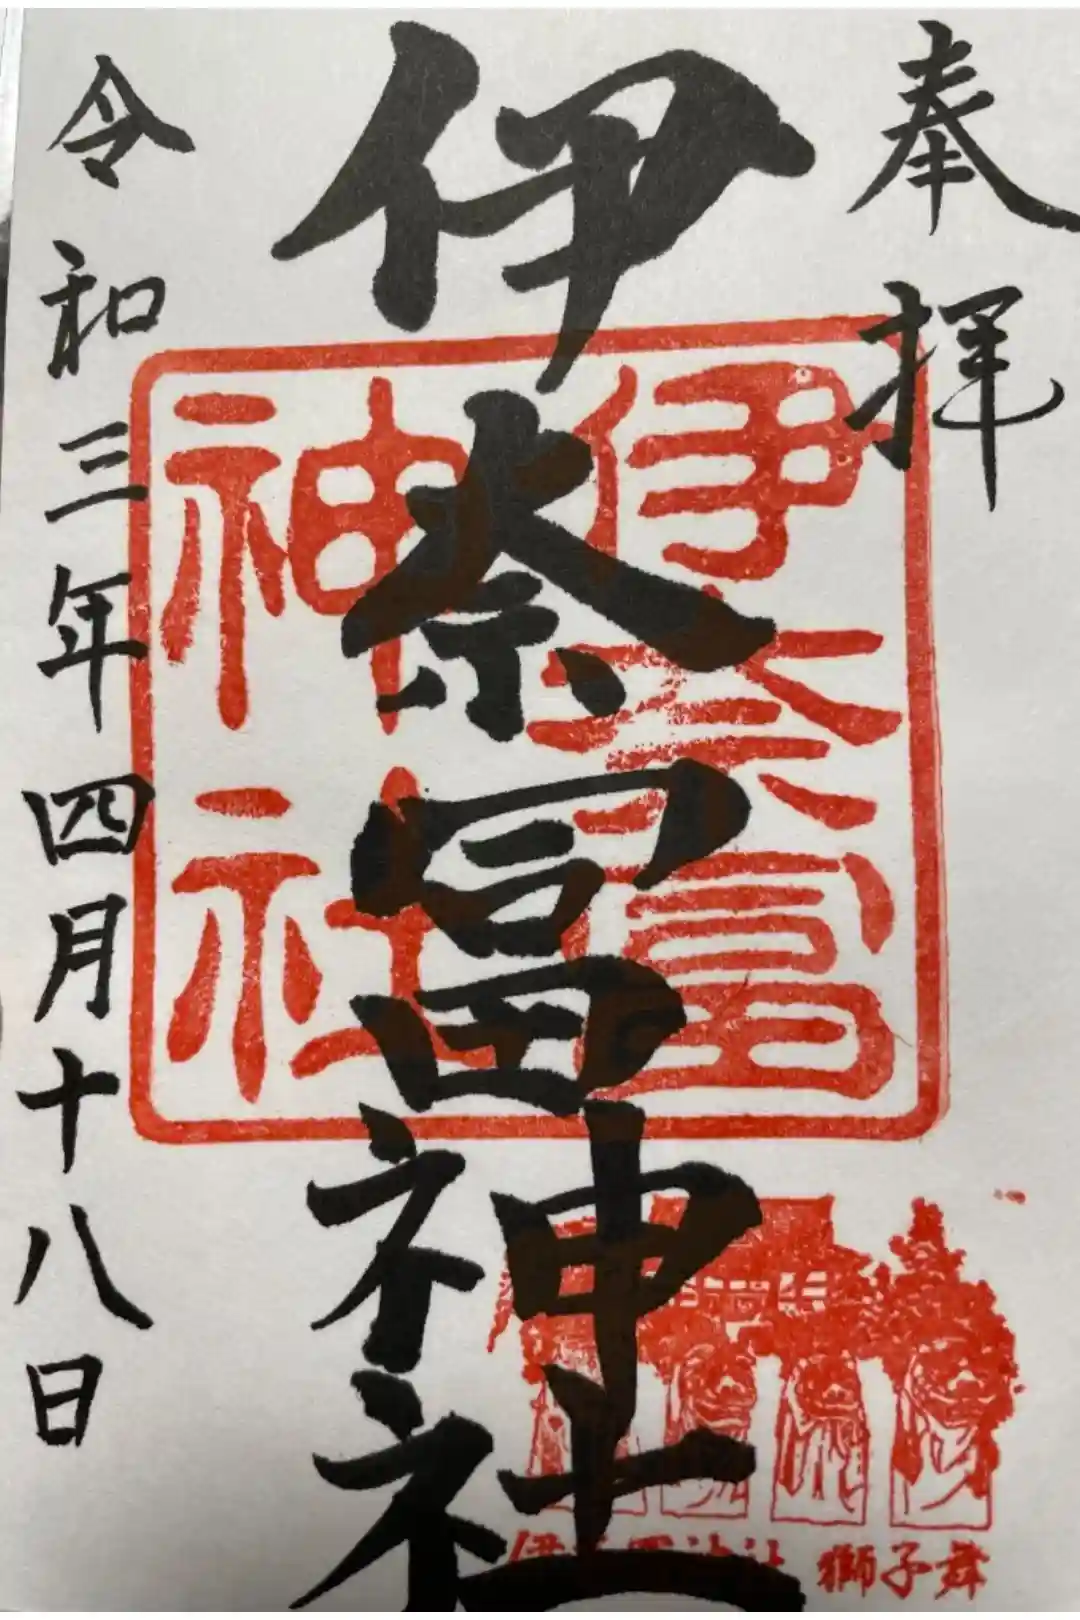 奉拝
伊奈冨神社
令和三年四月十八日
伊奈冨
神社
伊奈冨神社 獅子舞